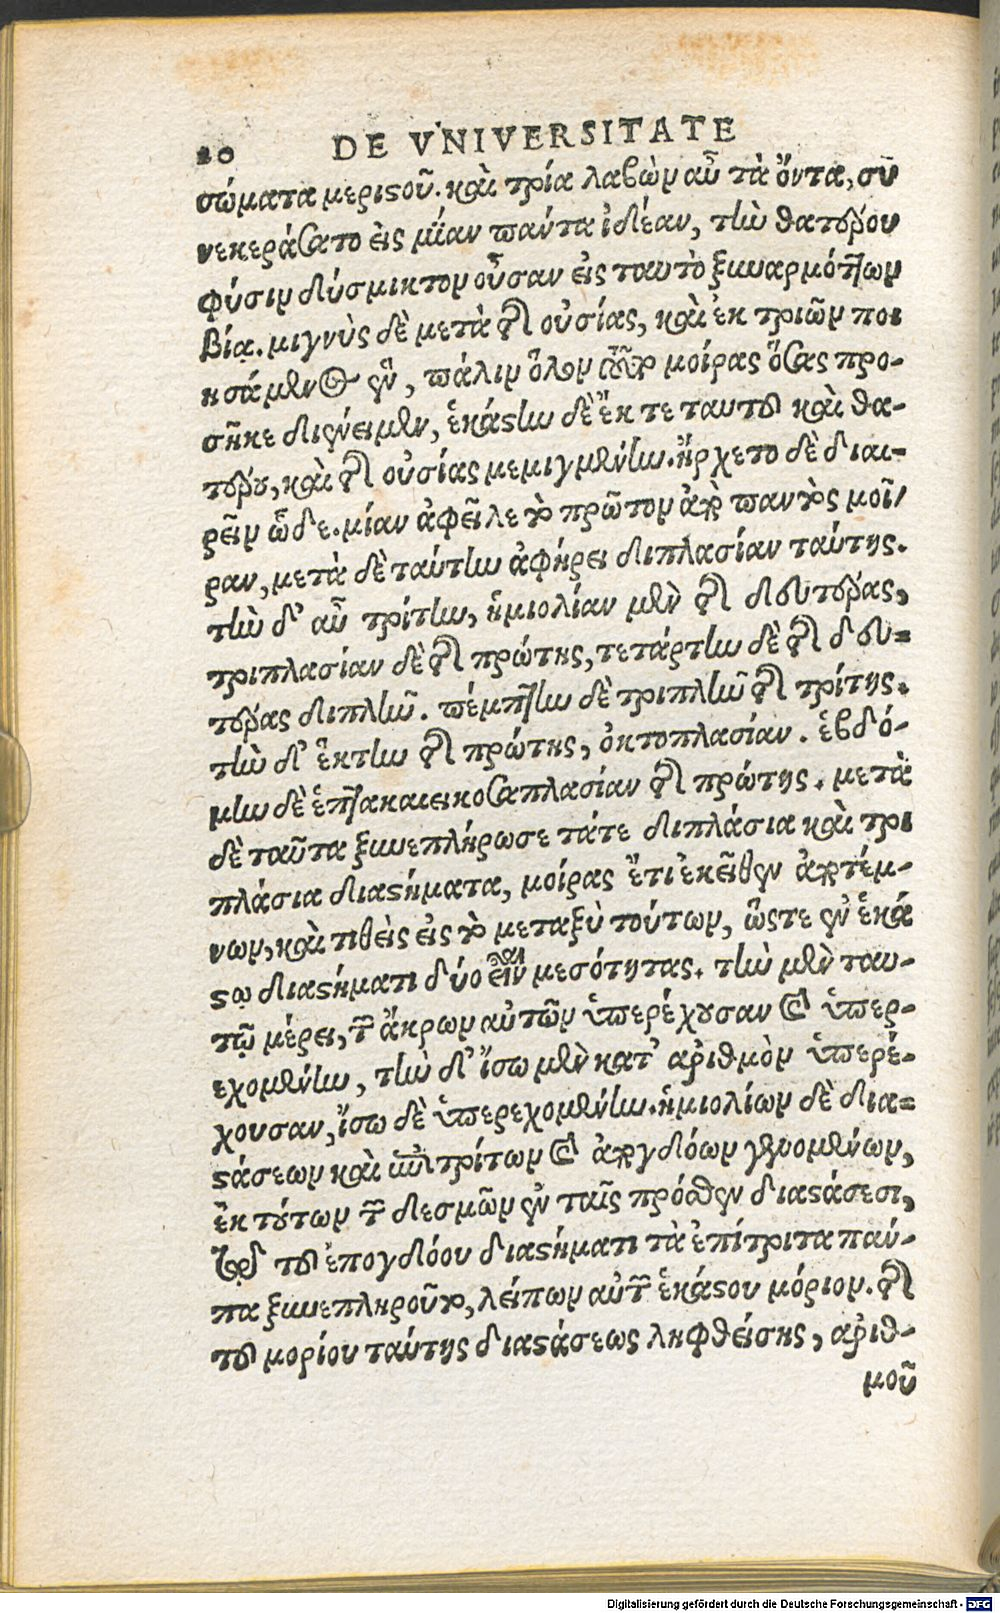 20 DE VNIVERSITATE
σώματα μεριστοῦ. καὶ τρία λαβὼν αὖ τὰ ὄντα, συ
νεκεράσατο εἰς μίαν πάντα ἰδέαν, τὴν θατέρου
φύσιν δύσμικτον οὖσαν εἰς ταυτὸ ξυναρμόττων
βίᾳ. μιγνὺς δὲ μετὰ τῆς οὐσίας, καὶ ἐκ τριῶν ποι
ησάμενος ἓν, πάλιν ὅλον τοῦτο μοίρας ὅσας προ-
σῆκε διένειμεν, ἑκάστην δὲ ἔκ τε ταυτοῦ καὶ θα-
τέρου, καὶ τῆς οὐσίας μεμιγμένην. ἤρχετο δὲ διαι-
ρεῖν ὧδε. μίαν ἀφεῖλε τὸ πρῶτον ἀπὸ παντὸς μοῖ-
ραν, μετὰ δὲ ταύτην ἀφῄρει διπλασίαν ταύτης.
τὴν δ' αὖ τρίτην, ἡμιολίαν μὲν τῆς δευτέρας,
τριπλασίαν δὲ τῆς πρώτης, τετάρτην δὲ τῆς δευ-
τέρας διπλῆν. πέμπτην δὲ τριπλῆν τῆς τρίτης.
τὴν δ' ἕκτην τῆς πρώτης, ὀκτοπλασίαν. ἑβδό-
μην δὲ ἑπτακαιεικοσαπλασίαν τῆς πρώτης. μετὰ
δὲ ταῦτα ξυνεπλήρωσε τάτε διπλάσια καὶ τρι
πλάσια διαστήματα, μοίρας ἔτι ἐκεῖθεν ἀποτέμ-
νων, καὶ τιθεὶς εἰς τὸ μεταξὺ τούτων, ὥστε ἐν ἑκά
στῳ διαστήματι δύο εἶναι μεσότητας. τὴν μὲν ταυ-
τῷ μέρει, τῶν ἄκρων αὐτῶν ὑπερέχουσαν καὶ ὑπερ-
εχομένην, τὴν δ' ἴσω μὲν κατ' ἀριθμὸν ὑπερέ-
χουσαν, ἴσω δὲ ὑπερεχομένην. ἡμιολίων δὲ δια-
στάσεων καὶ ἐπιτρίτων καὶ ἐπογδόων γενομένων,
ἐκ τούτων τῶν δεσμῶν ἐν ταῖς πρόσθεν διαστάσεσι,
τῷ τοῦ ἐπογδόου διαστήματι τὰ ἐπίτριτα πάν-
πα ξυνεπληροῦτο, λείπων αὐτῶν ἑκάστου μόριον. τῆς
τοῦ μορίου ταύτης διαστάσεως ληφθείσης, ἀριθ-
μοῦ
Digitalisierung gefördert durch die Deutsche Forschungsgemeinschaft - DFG